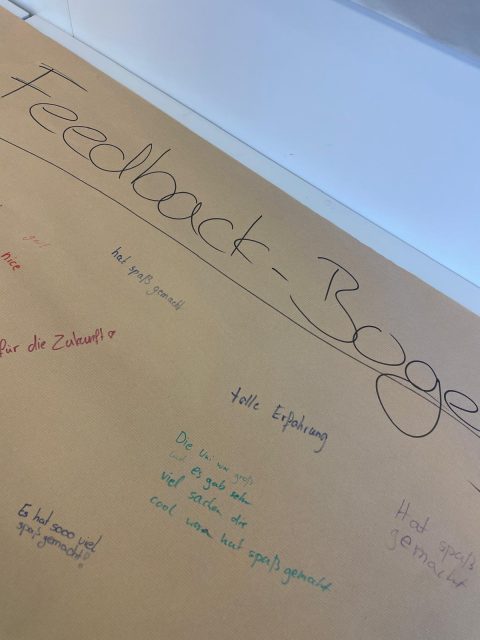 Feedback-Boge
gut
nice
hat spaß gemacht
für die Zukunft
tolle Erfahrung
Die Uni war groß
und es gab sehr
viel sachen die
cool waren hat spaß gemacht
Es hat sooo viel
spaß gemacht!
Hat spaß
gemacht